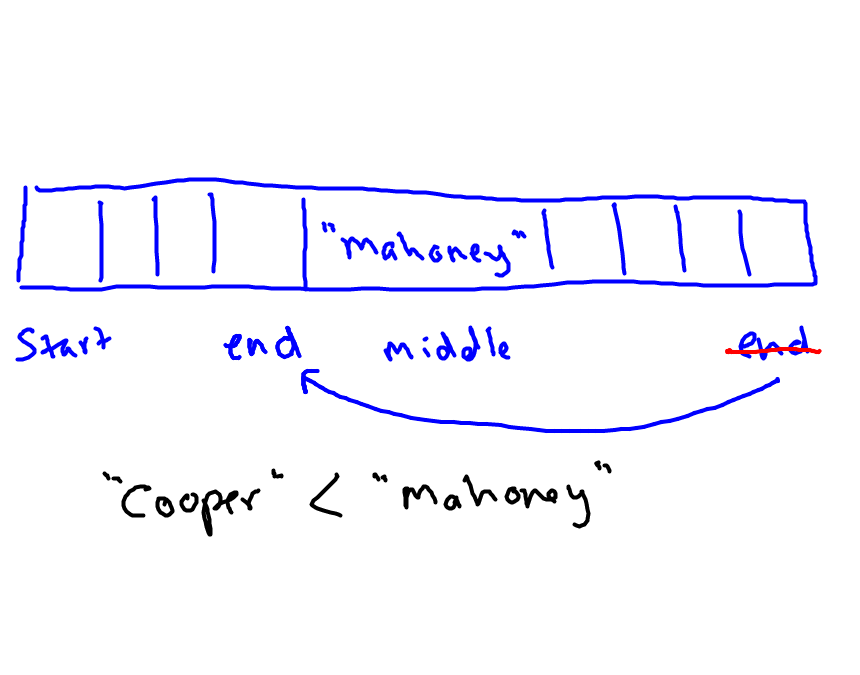 "mahoney"
Start end middle end
"Cooper" < "mahoney"